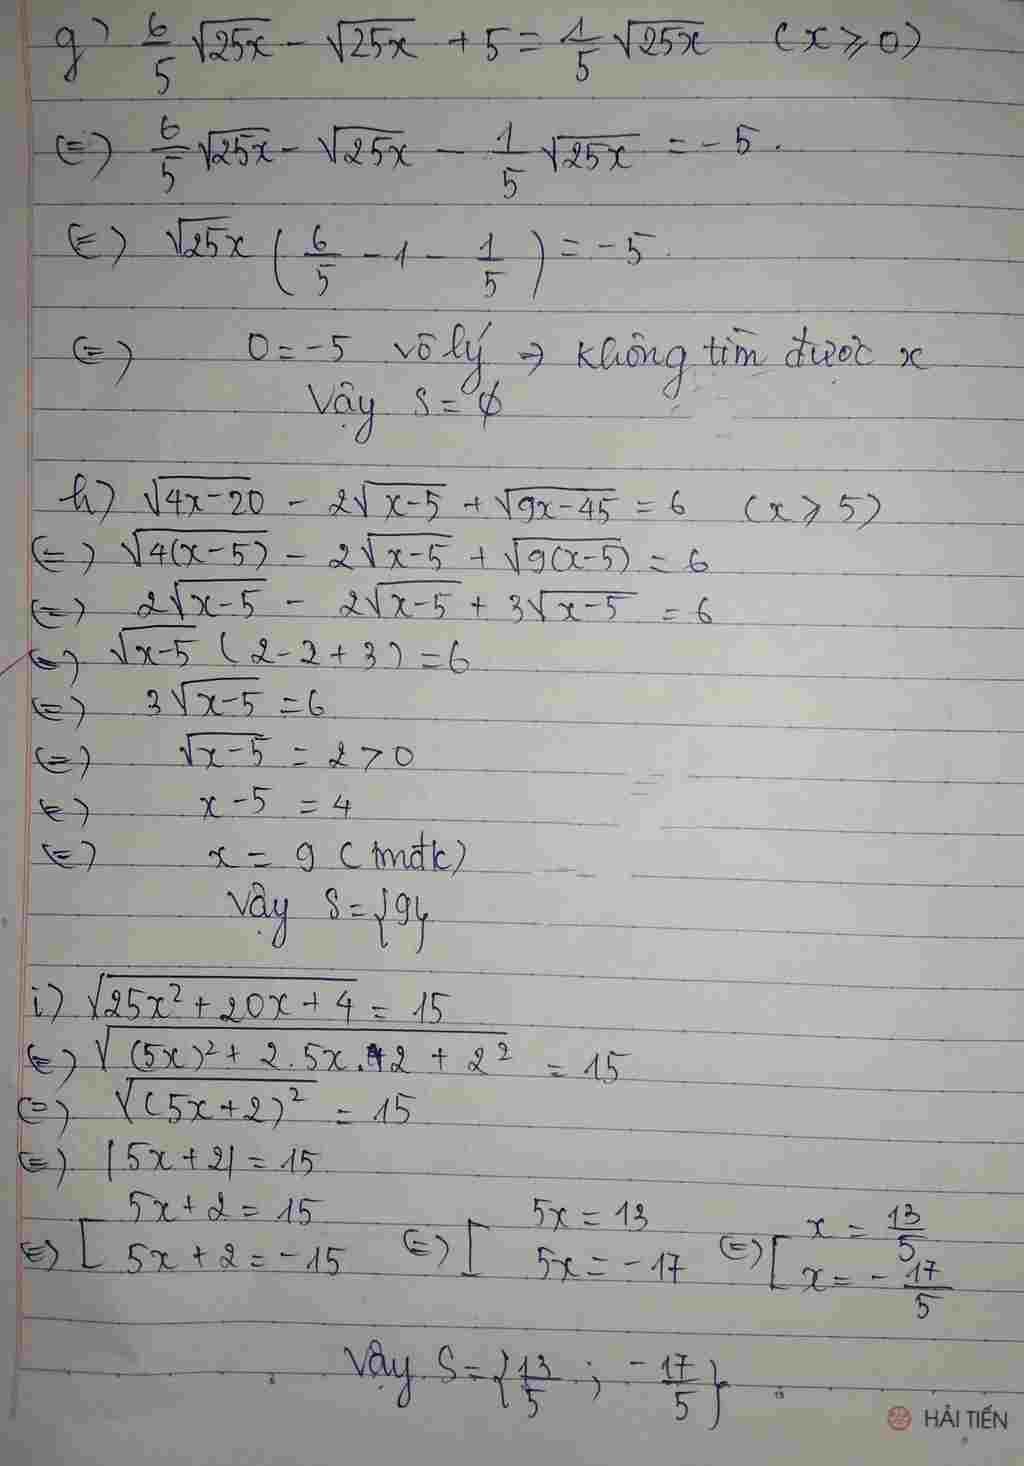 g) 6/5 √25x - √25x + 5 = 1/5 √25x (x ≥ 0)
(=) 6/5 √25x - √25x - 1/5 √25x = -5.
(=) √25x (6/5 - 1 - 1/5) = -5.
(=) 0 = -5 vô lý => không tìm được x
Vậy S = ∅
h) √4x-20 - 2√x-5 + √9x-45 = 6 (x ≥ 5)
(=) √4(x-5) - 2√x-5 + √9(x-5) = 6
(=) 2√x-5 - 2√x-5 + 3√x-5 = 6
(=) √x-5 (2-2+3) = 6
(=) 3√x-5 = 6
(=) √x-5 = 2 > 0
(=) x-5 = 4
(=) x = 9 (tmđk)
Vậy S = {9}
i) √25x² + 20x + 4 = 15
(=) √(5x)² + 2.5x.2 + 2² = 15
(=) √(5x+2)² = 15
(=) |5x+2| = 15
(=) [ 5x+2 = 15 (=) [ 5x = 13 (=) [ x = 13/5
5x+2 = -15 5x = -17 x = -17/5
Vậy S = {13/5 ; -17/5}
HẢI TIẾN